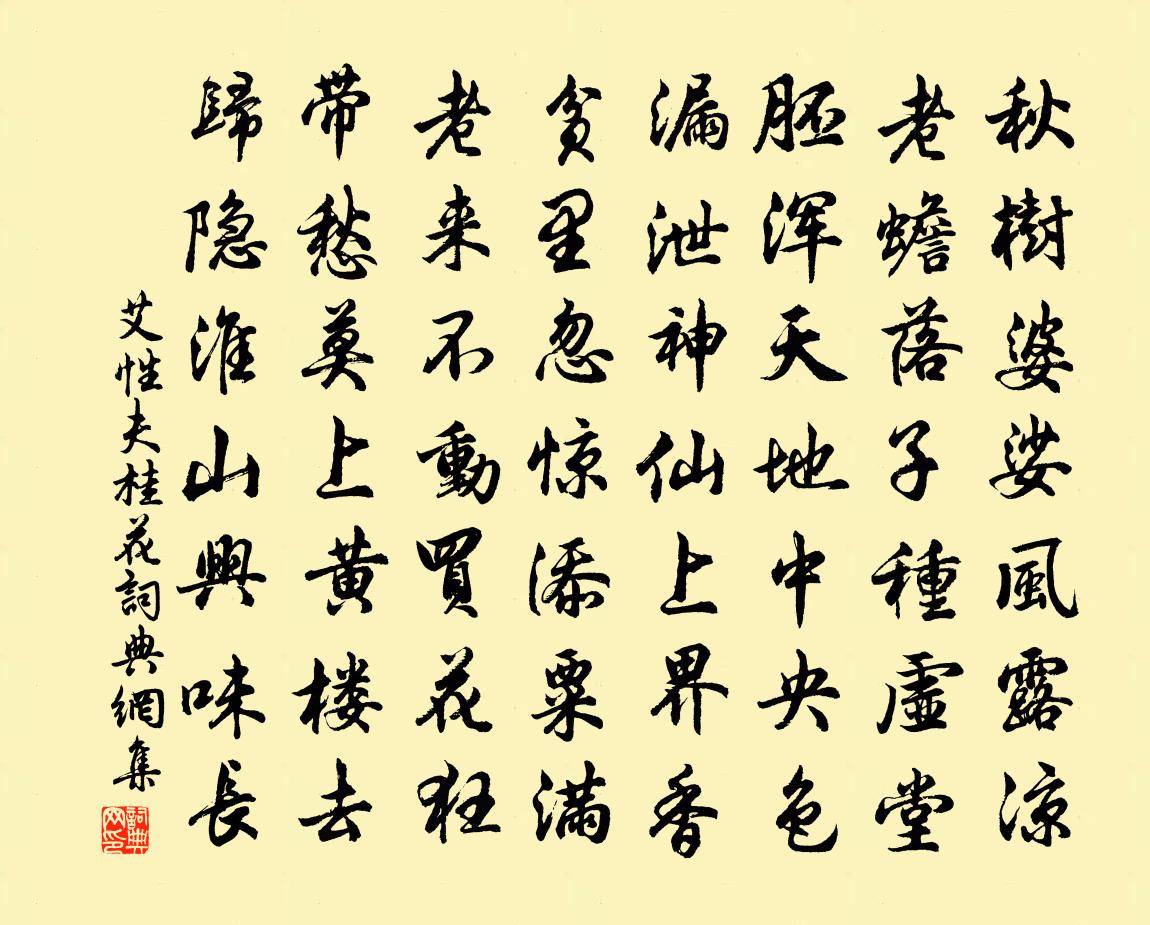 秋樹婆娑風露凉
老蟾落子種虛堂
胚浑天地中央色
漏泄神仙上界香
贫里忽惊添粟满
老来不動買花狂
带愁莫上黄楼去
歸隐淮山興味長
艾性夫桂花詞典網集
詞典网印